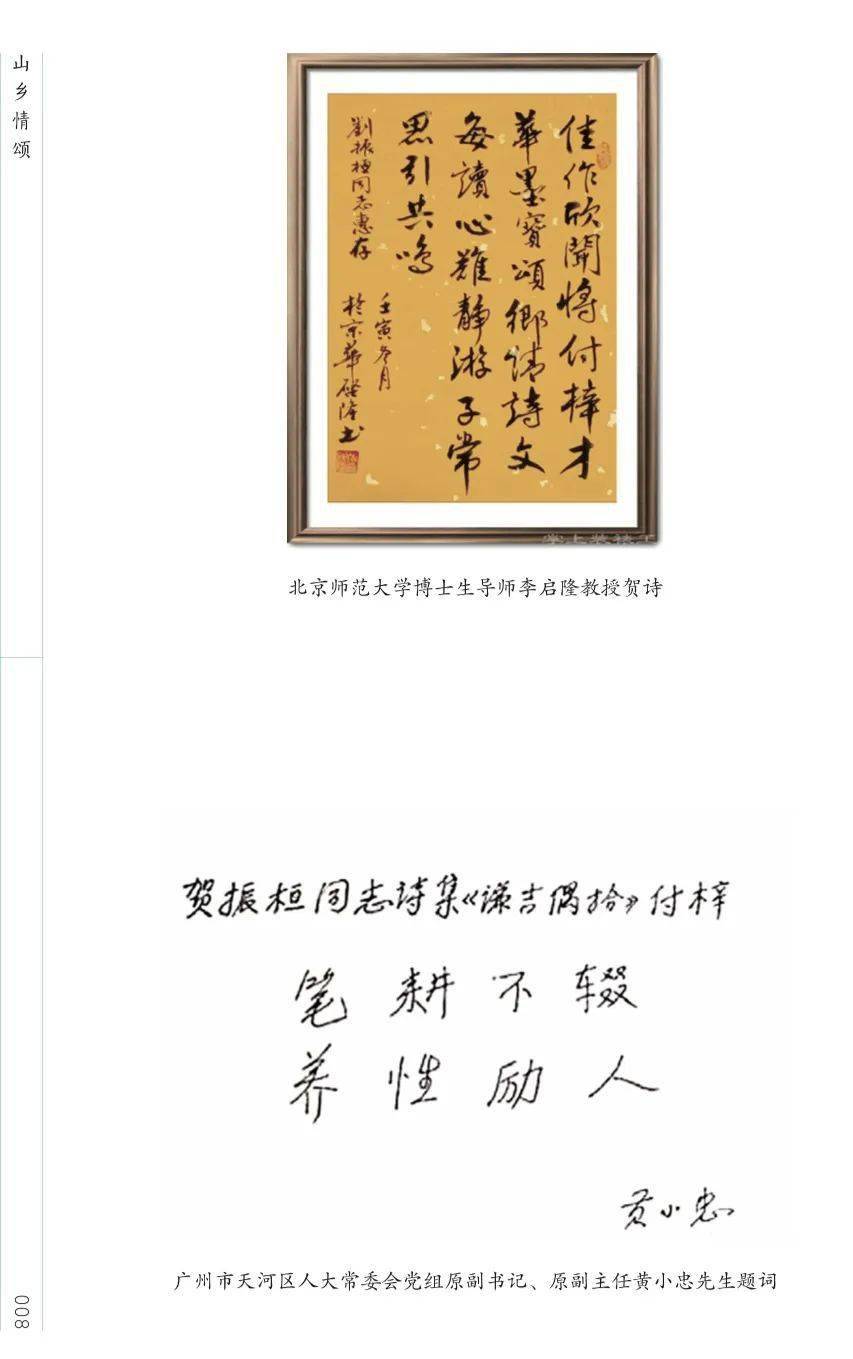 山乡情颂
佳作欣聞將付梓才
華墨寶頌鄉情詩文
每讀心難静游子常
思引共鳴
劉振桓同志惠存
壬寅冬月
於京華啓隆书
北京师范大学博士生导师李启隆教授贺诗
贺振桓同志詩集《谦吉偶拾》付梓
笔耕不辍
养性励人
黄小忠
广州市天河区人大常委会党组原副书记、原副主任黄小忠先生题词
008